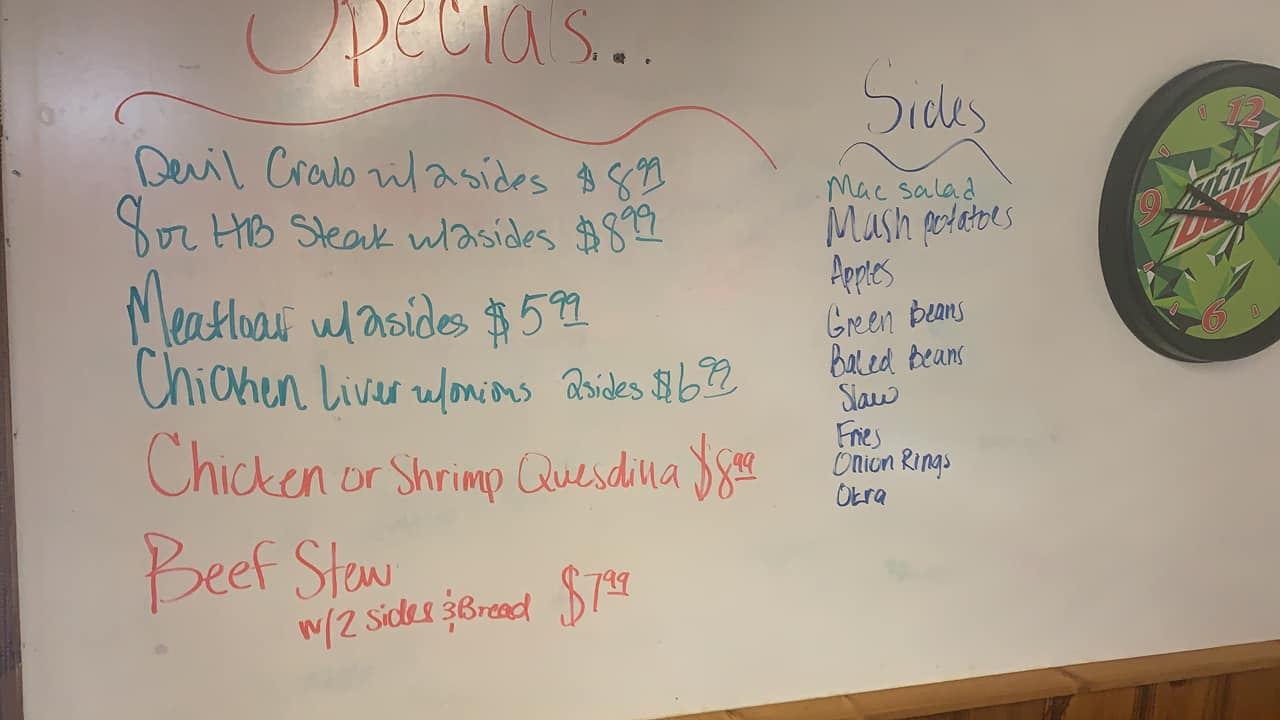 Specials...
Devil Crab w/2sides $8.99
8oz HB Steak w/2sides $8.99
Meatloaf w/2sides $5.99
Chicken Liver w/onions 2sides $6.99
Chicken or Shrimp Quesdilla $8.99
Beef Stew
w/2 sides & Bread $7.99
Sides
Mac salad
Mash potatoes
Apples
Green Beans
Baked Beans
Slaw
Fries
Onion Rings
Okra
12
mtn
DEW
9
6